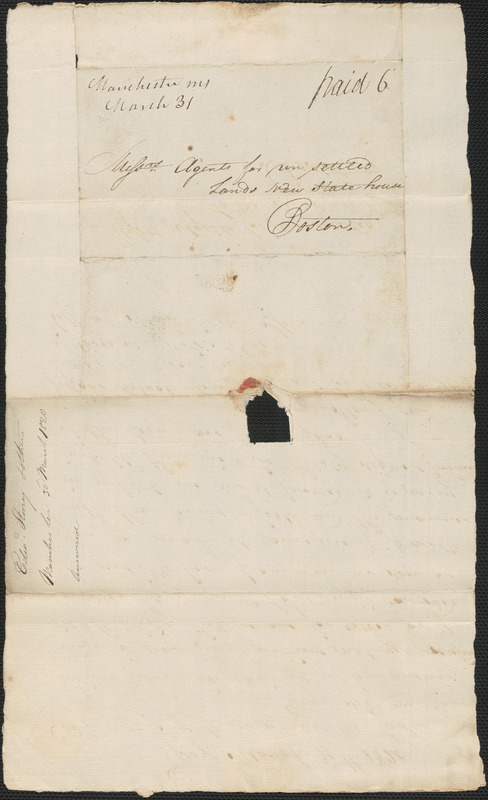 Manchester ms
March 31
paid 6
Messrs. Agents for un settled
Lands New State house
Boston.
Edwd. Story
Manchester 30 March 1820
Answered